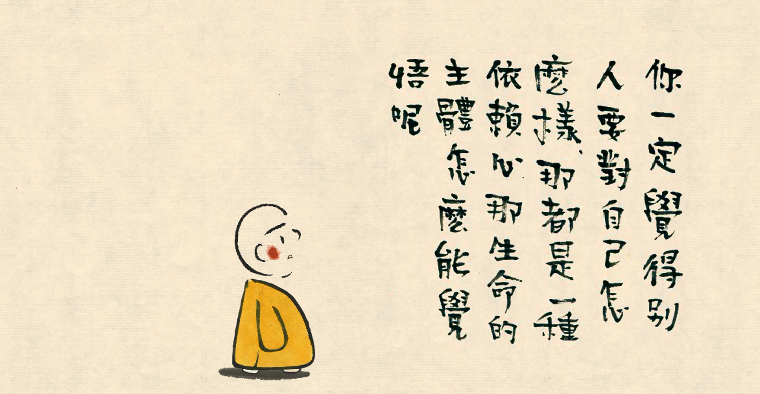 你一定覺得别
人要對自己怎
麽樣、那都是一種
依賴心那生命的
主體怎麽能覺
悟呢